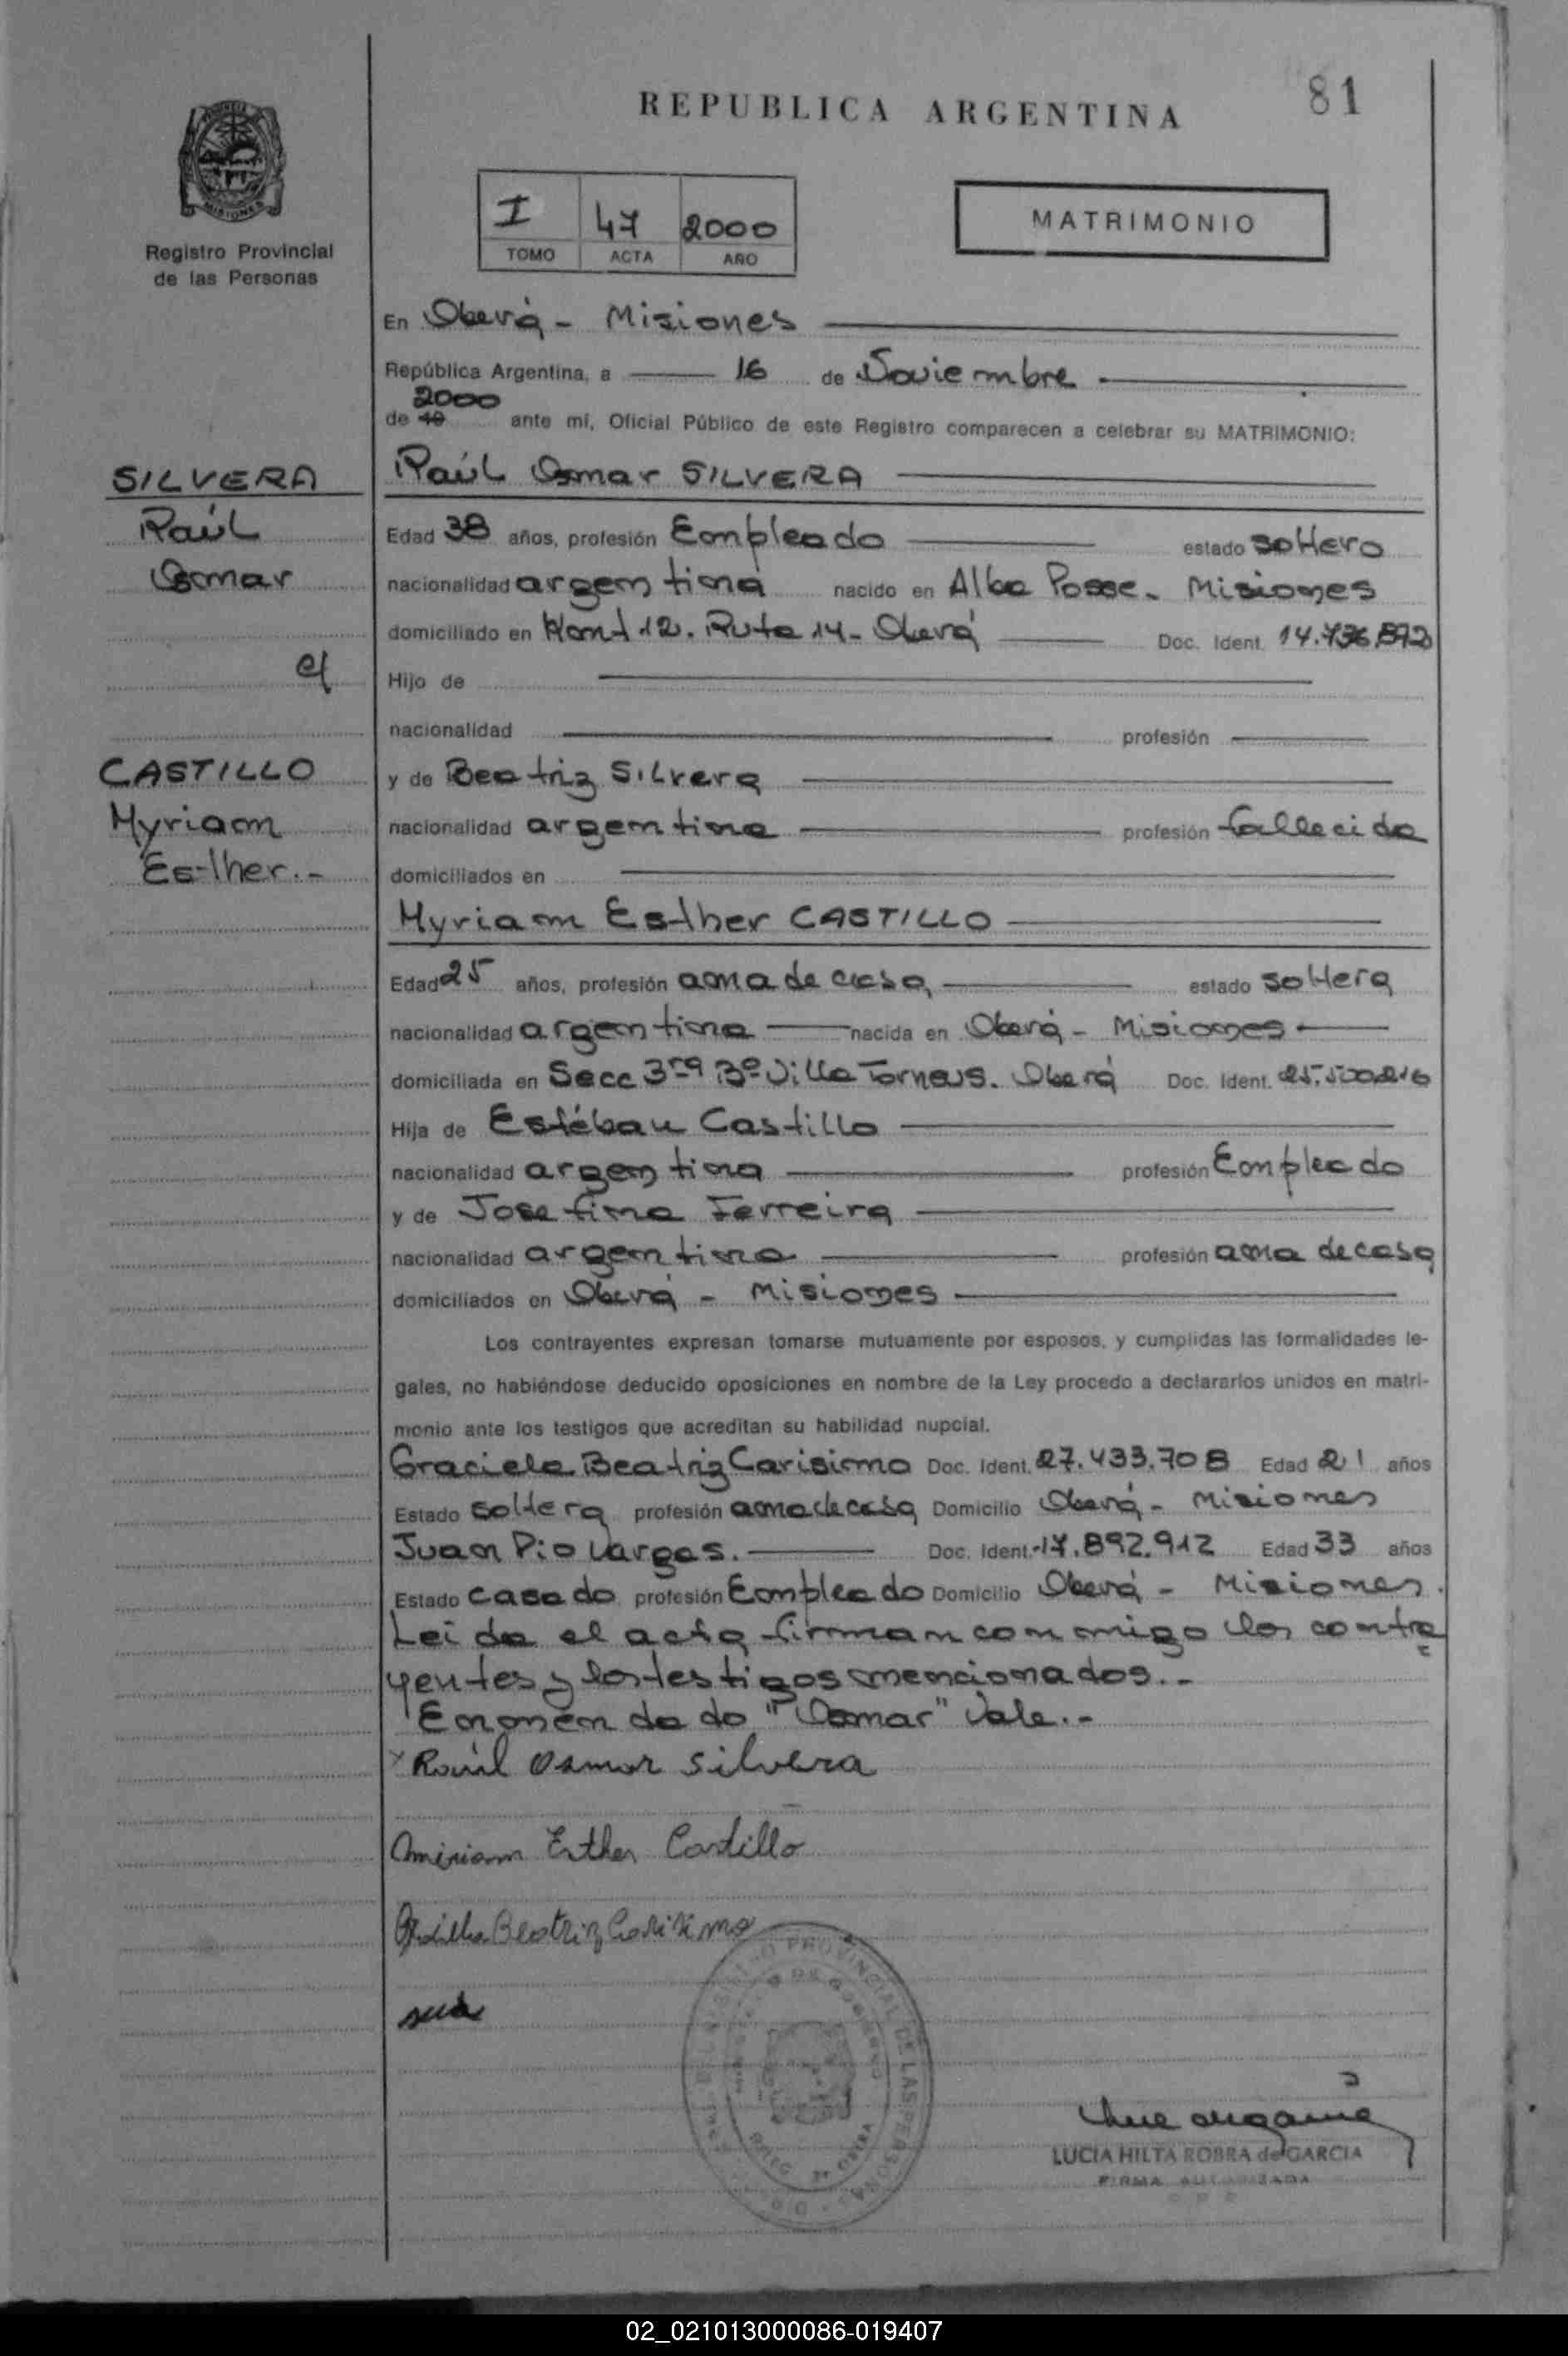 81
REPUBLICA ARGENTINA
MISIONES
Registro Provincial
de las Personas
I 47 2000
TOMO ACTA AÑO
MATRIMONIO
En Oberá - Misiones
República Argentina, a 16 de Noviembre
2000
de 19 ante mí, Oficial Público de este Registro comparecen a celebrar su MATRIMONIO:
SILVERA
Raúl
Osmar
c/
CASTILLO
Myriam
Esther.-
Raúl Osmar SILVERA
Edad 38 años, profesión Empleado estado soltero
nacionalidad argentina nacido en Alba Posse - Misiones
domiciliado en Km 12. Ruta 14 - Oberá Doc. Ident. 14.736.892
Hijo de
nacionalidad profesión
y de Beatriz Silvera
nacionalidad argentina profesión fallecida
domiciliados en
Myriam Esther CASTILLO
Edad 25 años, profesión ama de casa estado soltera
nacionalidad argentina nacida en Oberá - Misiones
domiciliada en Secc 3ra Bº Villa Doc. Ident. 25.500.216
Oberá
Hija de Estéban Castillo
nacionalidad argentina profesión Empleado
y de Josefina Ferreira
nacionalidad argentina profesión ama de casa
domiciliados en Oberá - Misiones
Los contrayentes expresan tomarse mutuamente por esposos, y cumplidas las formalidades le-
gales, no habiéndose deducido oposiciones en nombre de la Ley procedo a declararlos unidos en matri-
monio ante los testigos que acreditan su habilidad nupcial.
Graciela Beatriz Carisimo Doc. Ident. 27.433.708 Edad 21 años
Estado soltera profesión ama de casa Domicilio Oberá - Misiones
Juan Pio Vargas. Doc. Ident. 17.892.912 Edad 33 años
Estado casado profesión Empleado Domicilio Oberá - Misiones.
Leida el acta firman conmigo los contra
yentes y los testigos mencionados.-
Enmendado "Osmar" Vale.-
x Raúl Osmar Silvera
Miriam Esther Castillo
Beatriz Carisimo
LUCIA HILTA ROBRA de GARCIA
FIRMA AUTORIZADA
02_021013000086-019407